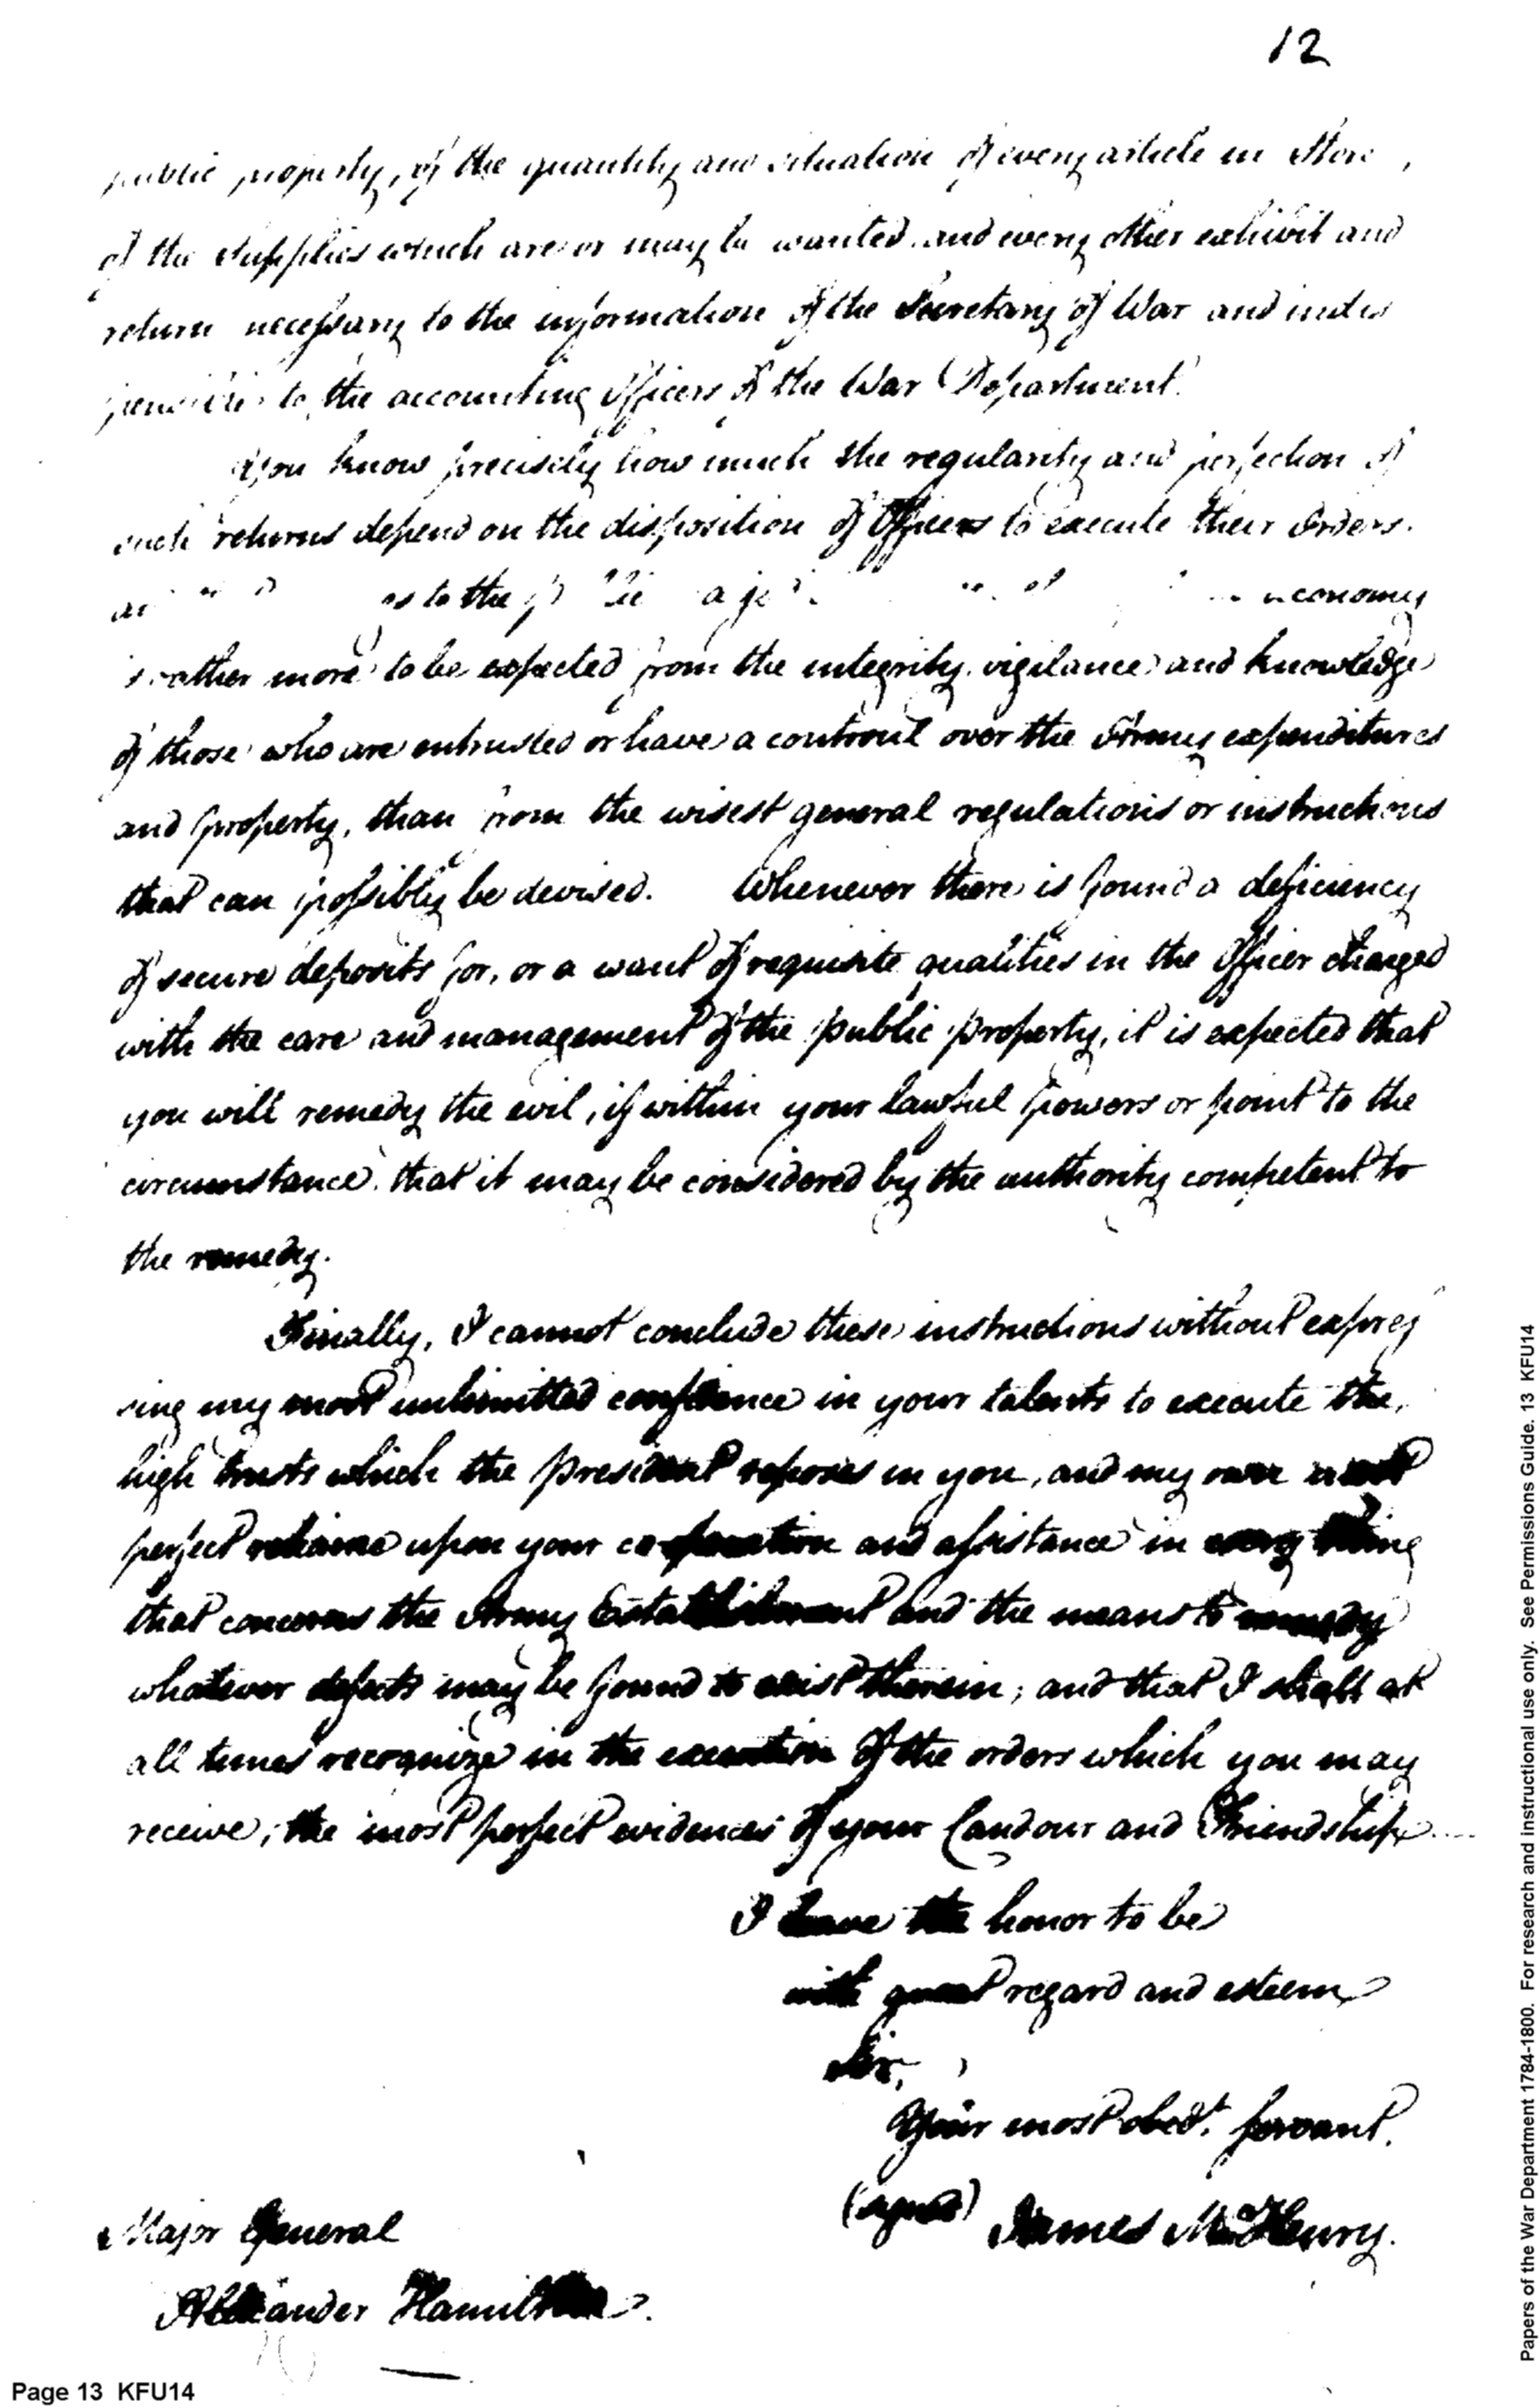 12
public property, of the quantity and situation of every article in Store,
of the supplies which are or may be wanted, and every other exhibit and
return necessary to the information of the Secretary of War and indis
pensible to the accounting Officers of the War Department.
You know precisely how much the regularity and perfection of
such returns depend on the disposition of Officers to execute their Orders.
as to the a economy
is rather more to be expected from the integrity, vigilance and knowledge
of those who are entrusted or have a controul over the Army expenditures
and property, than from the wisest general regulations or instructions
that can possibly be devised. Whenever there is found a deficiency
of secure deposits for, or a want of requisite qualities in the Officer charged
with the care and management of the public property, it is expected that
you will remedy the evil, if within your lawful powers or point to the
circumstance, that it may be considered by the authority competent to
the remedy.
Finally, I cannot conclude these instructions without expres
sing my most unlimitted confidence in your talents to execute the,
high trusts which the President reposes in you, and my own most
perfect reliance upon your co-operation and assistance in every thing
that concerns the Army Establishment and the means to remedy
whatever defects may be found to exist therein; and that I shall at
all times recognize in the execution of the orders which you may
receive, the most perfect evidences of your Candour and Friendship....
I have the honor to be
with great regard and esteem
Sir,
Your most obedt. servant.
(signed) James McHenry.
Major General
Alexander Hamilton.
Page 13 KFU14
Papers of the War Department 1784-1800. For research and instructional use only. See Permissions Guide. 13 KFU14